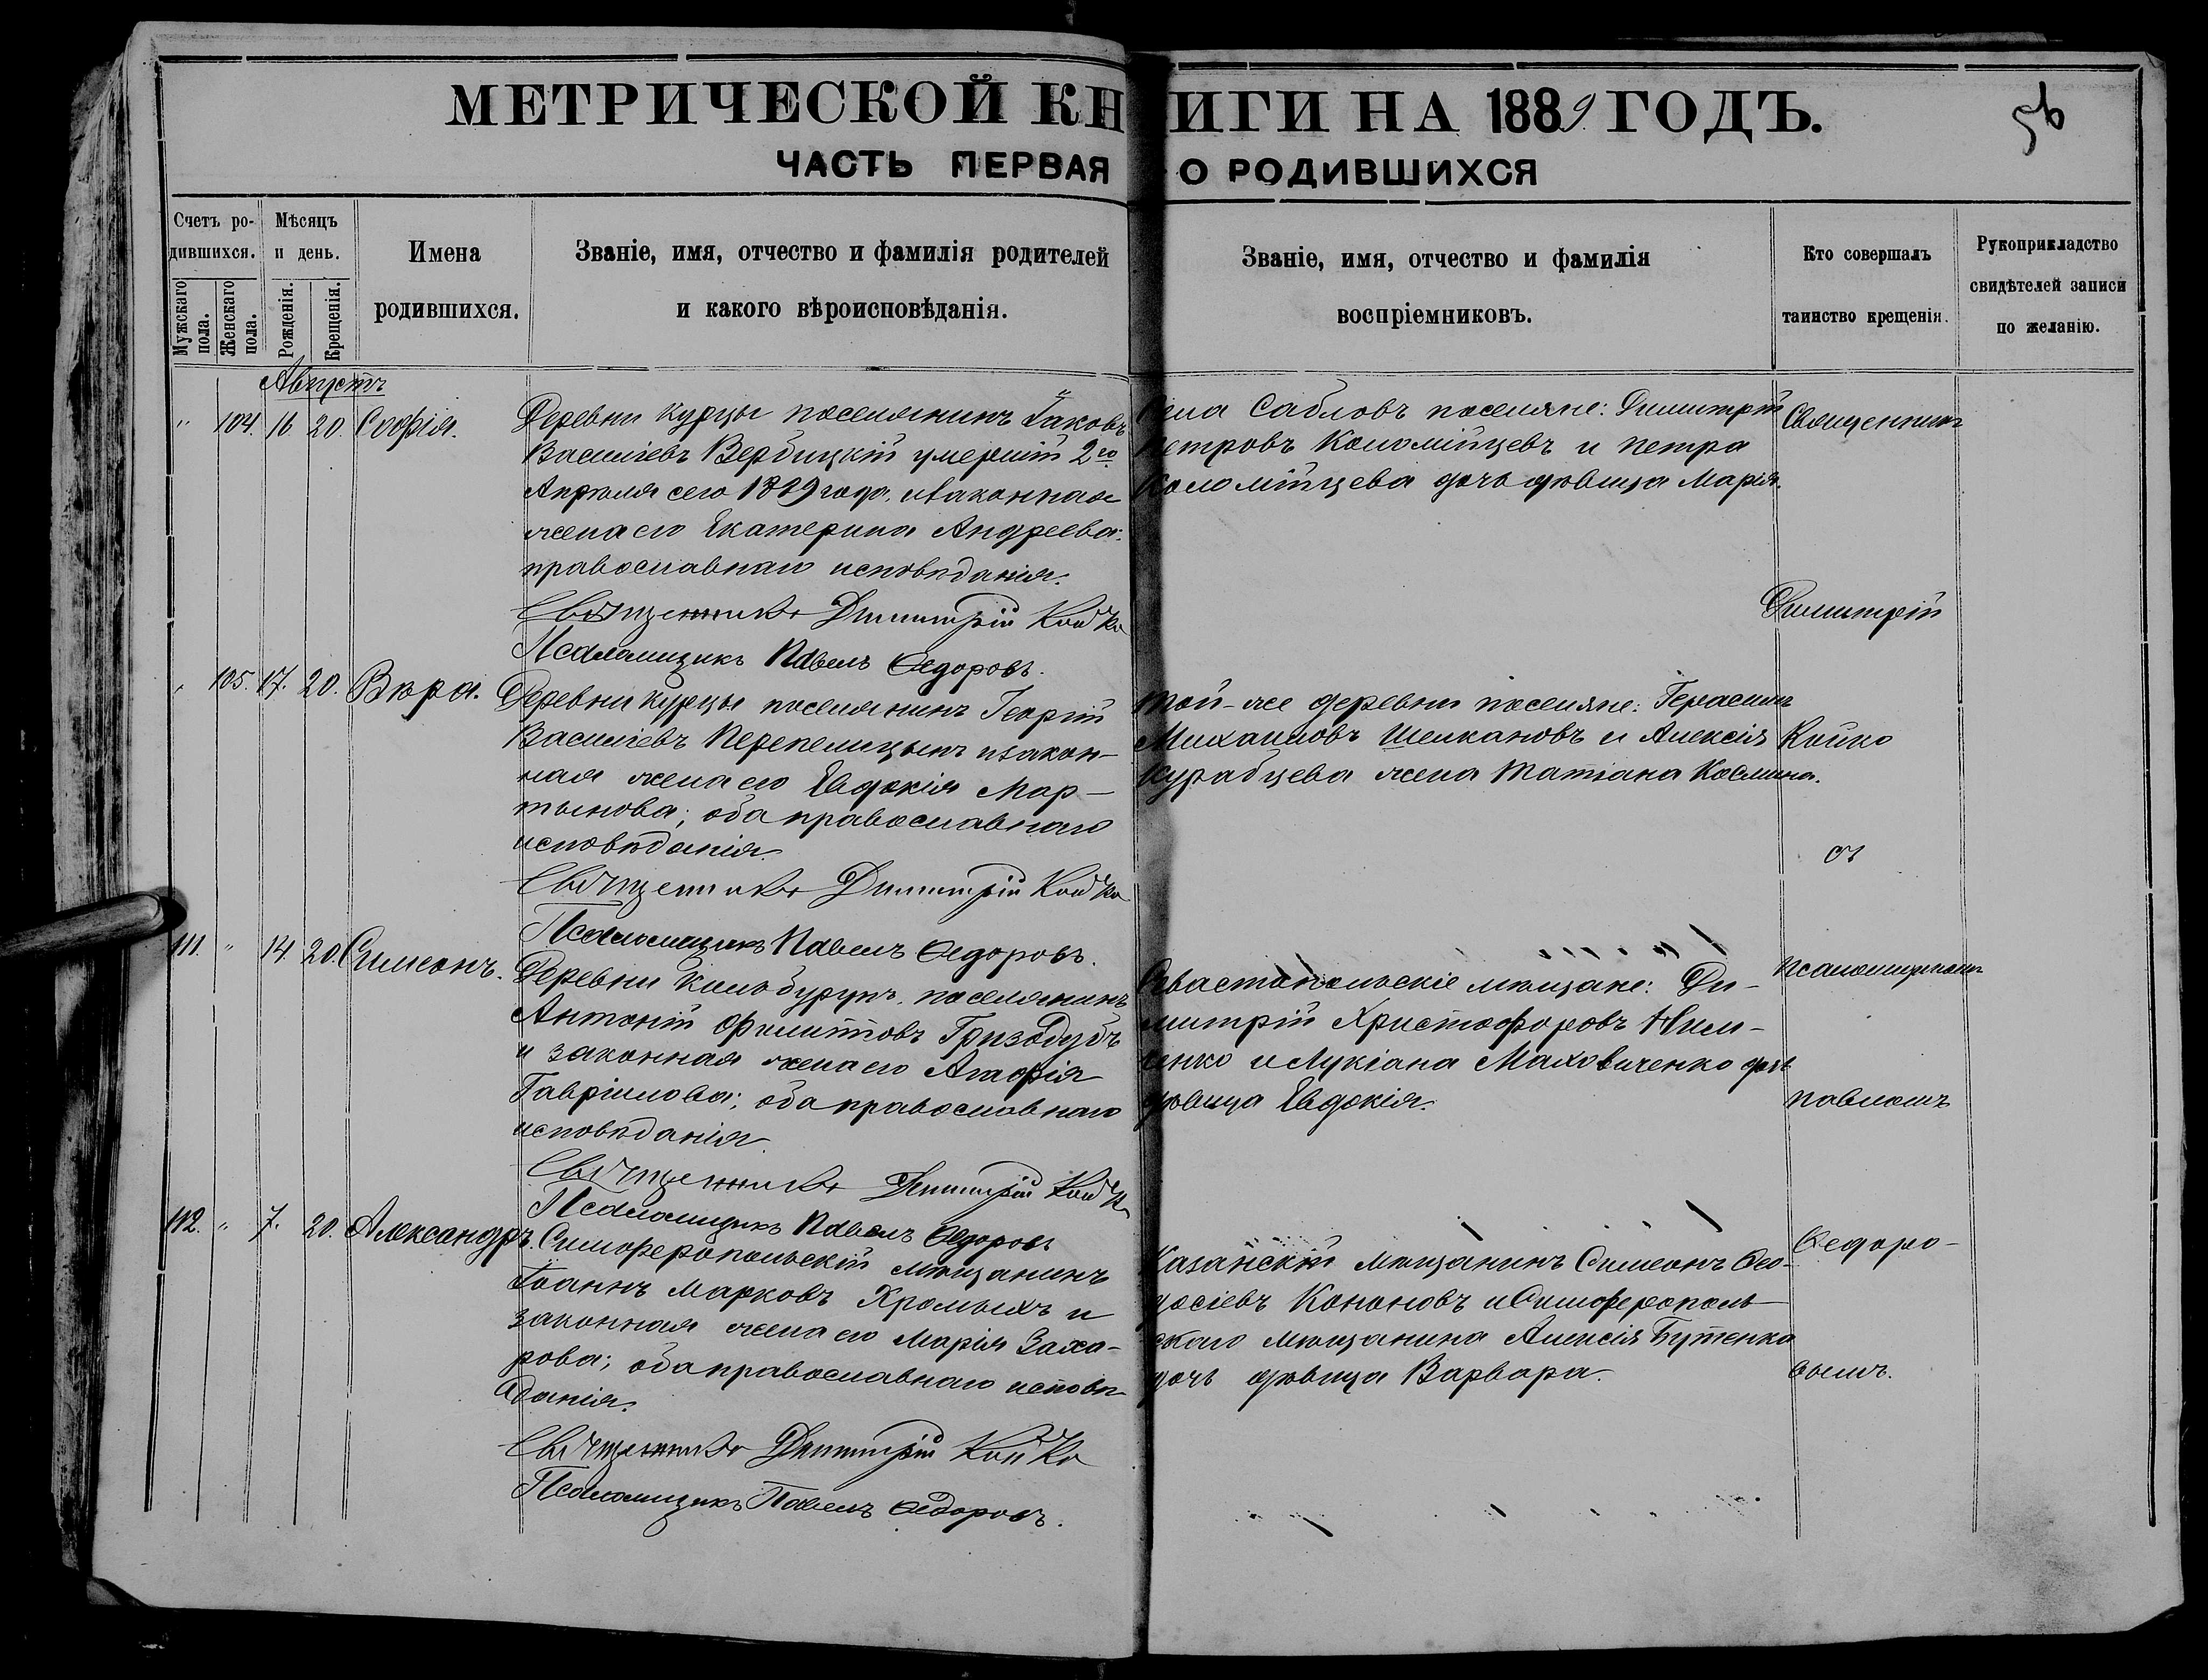 МЕТРИЧЕСКОЙ КНИГИ НА 1889 ГОДЪ.
56
ЧАСТЬ ПЕРВАЯ О РОДИВШИХСЯ
Счетъ родившихся.
Мужскаго пола.
Женскаго пола.
Мѣсяцъ и день.
Рожденія.
Крещенія.
Имена родившихся.
Званіе, имя, отчество и фамилія родителей
и какого вѣроисповѣданія.
Званіе, имя, отчество и фамилія
воспріемниковъ.
Кто совершалъ
таинство крещенія.
Рукоприкладство
свидѣтелей записи
по желанію.
Августъ
" 104. 16 20. Софія.
Деревни Курцы поселянинъ Іаковъ
Васильевъ Вербицкій умершій 2го
Апрѣля сего 1889 года, и законная
жена его Екатерина Андреева:
православнаго исповѣданія.
Священникъ Димитрій Койко
Псаломщикъ Павелъ Ѳедоровъ.
Села Сабловъ поселяне: Димитрій
Петровъ Коломійцевъ и Петра
Коломійцева дочь дѣвица Марія.
Священникъ
Димитрій
" 105. 17. 20. Вѣра.
Деревни Курцы поселянинъ Георгій
Васильевъ Перепелицынъ и закон-
ная жена его Евдокія Мар-
тынова; оба православнаго
исповѣданія.
Священникъ Димитрій Койко
Псаломщикъ Павелъ Ѳедоровъ.
Той-же деревни поселяне: Герасимъ
Михаиловъ Шелкановъ и Алексія
Курабцева жена Татіана Космина.
Койко
съ
111. " 14. 20. Симеонъ.
Деревни Кильбурунъ, поселянинъ
Антоній Филипповъ Гризодубъ
и законная жена его Агафія
Гавріилова; оба православнаго
исповѣданія.
Священникъ Димитрій Койко
Псаломщикъ Павелъ Ѳедоровъ
Севастопольскіе мѣщане: Ди-
митрій Христофоровъ
и Лукіана Маховиченко дочь
дѣвица Евдокія.
псаломщикомъ
Павломъ
112. " 7. 20. Александръ.
Симферопольскій мѣщанинъ
Іоаннъ Марковъ Хромыхъ и
законная жена его Марія Заха-
рова; оба православнаго исповѣ-
данія.
Священникъ Димитрій Койко
Псаломщикъ Павелъ Ѳедоровъ.
Казанскій мѣщанинъ Симеонъ Ѳео-
досіевъ Кононовъ и Симферополь-
скаго мѣщанина Алексія Бутенко
дочь дѣвица Варвара.
Ѳедоро-
вымъ.